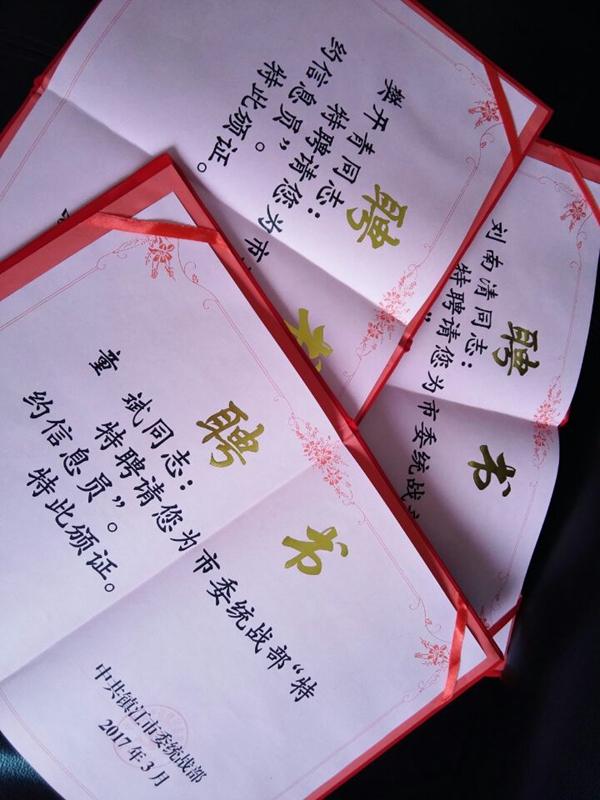 聘书
童 斌同志：
特聘请您为市委统战部“特
约信息员”。
特此颁证。
中共镇江市委统战部
2017年3月
聘书
樊开青同志：
特聘请您为市
约信息员”。
特此颁证。
聘书
刘南清同志：
特聘请您为市委统战
”